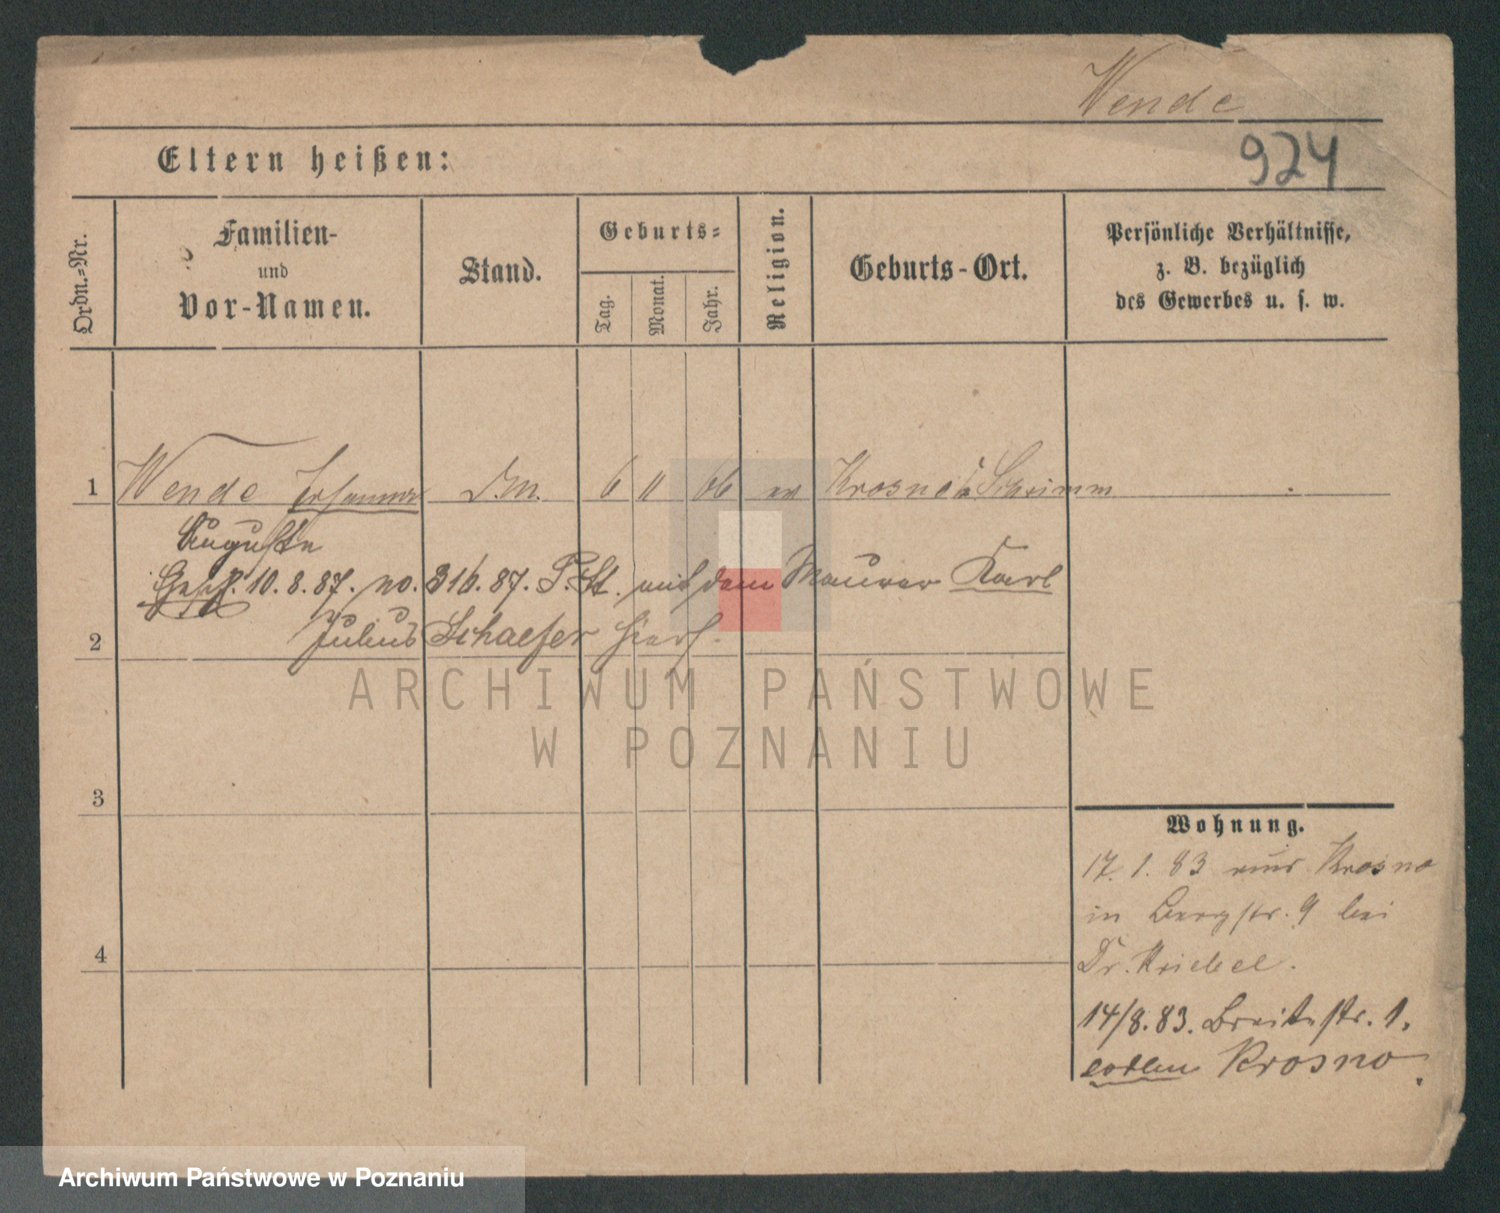 Wende
924
Eltern heißen:
Ordn.-Nr.
Familien-
und
Vor-Namen.
Stand.
Geburts-
Tag.
Monat.
Jahr.
Religion.
Geburts-Ort.
Persönliche Verhältnisse,
z. B. bezüglich
des Gewerbes u. s. w.
1 Wende Johanna D.M. 6 11 66 ev Krosno Schrimm
Auguste
10.8.87. no. 316.87. P.St. mit dem Maurer Karl
Julius Schaefer
2
ARCHIWUM PAŃSTWOWE
W POZNANIU
3
Wohnung.
17. 1. 83 aus Krosno
in Bergstr. 9 bei
Dr. Kriebel.
4
14/8.83. Breitestr. 1.
eodem Krosno
Archiwum Państwowe w Poznaniu